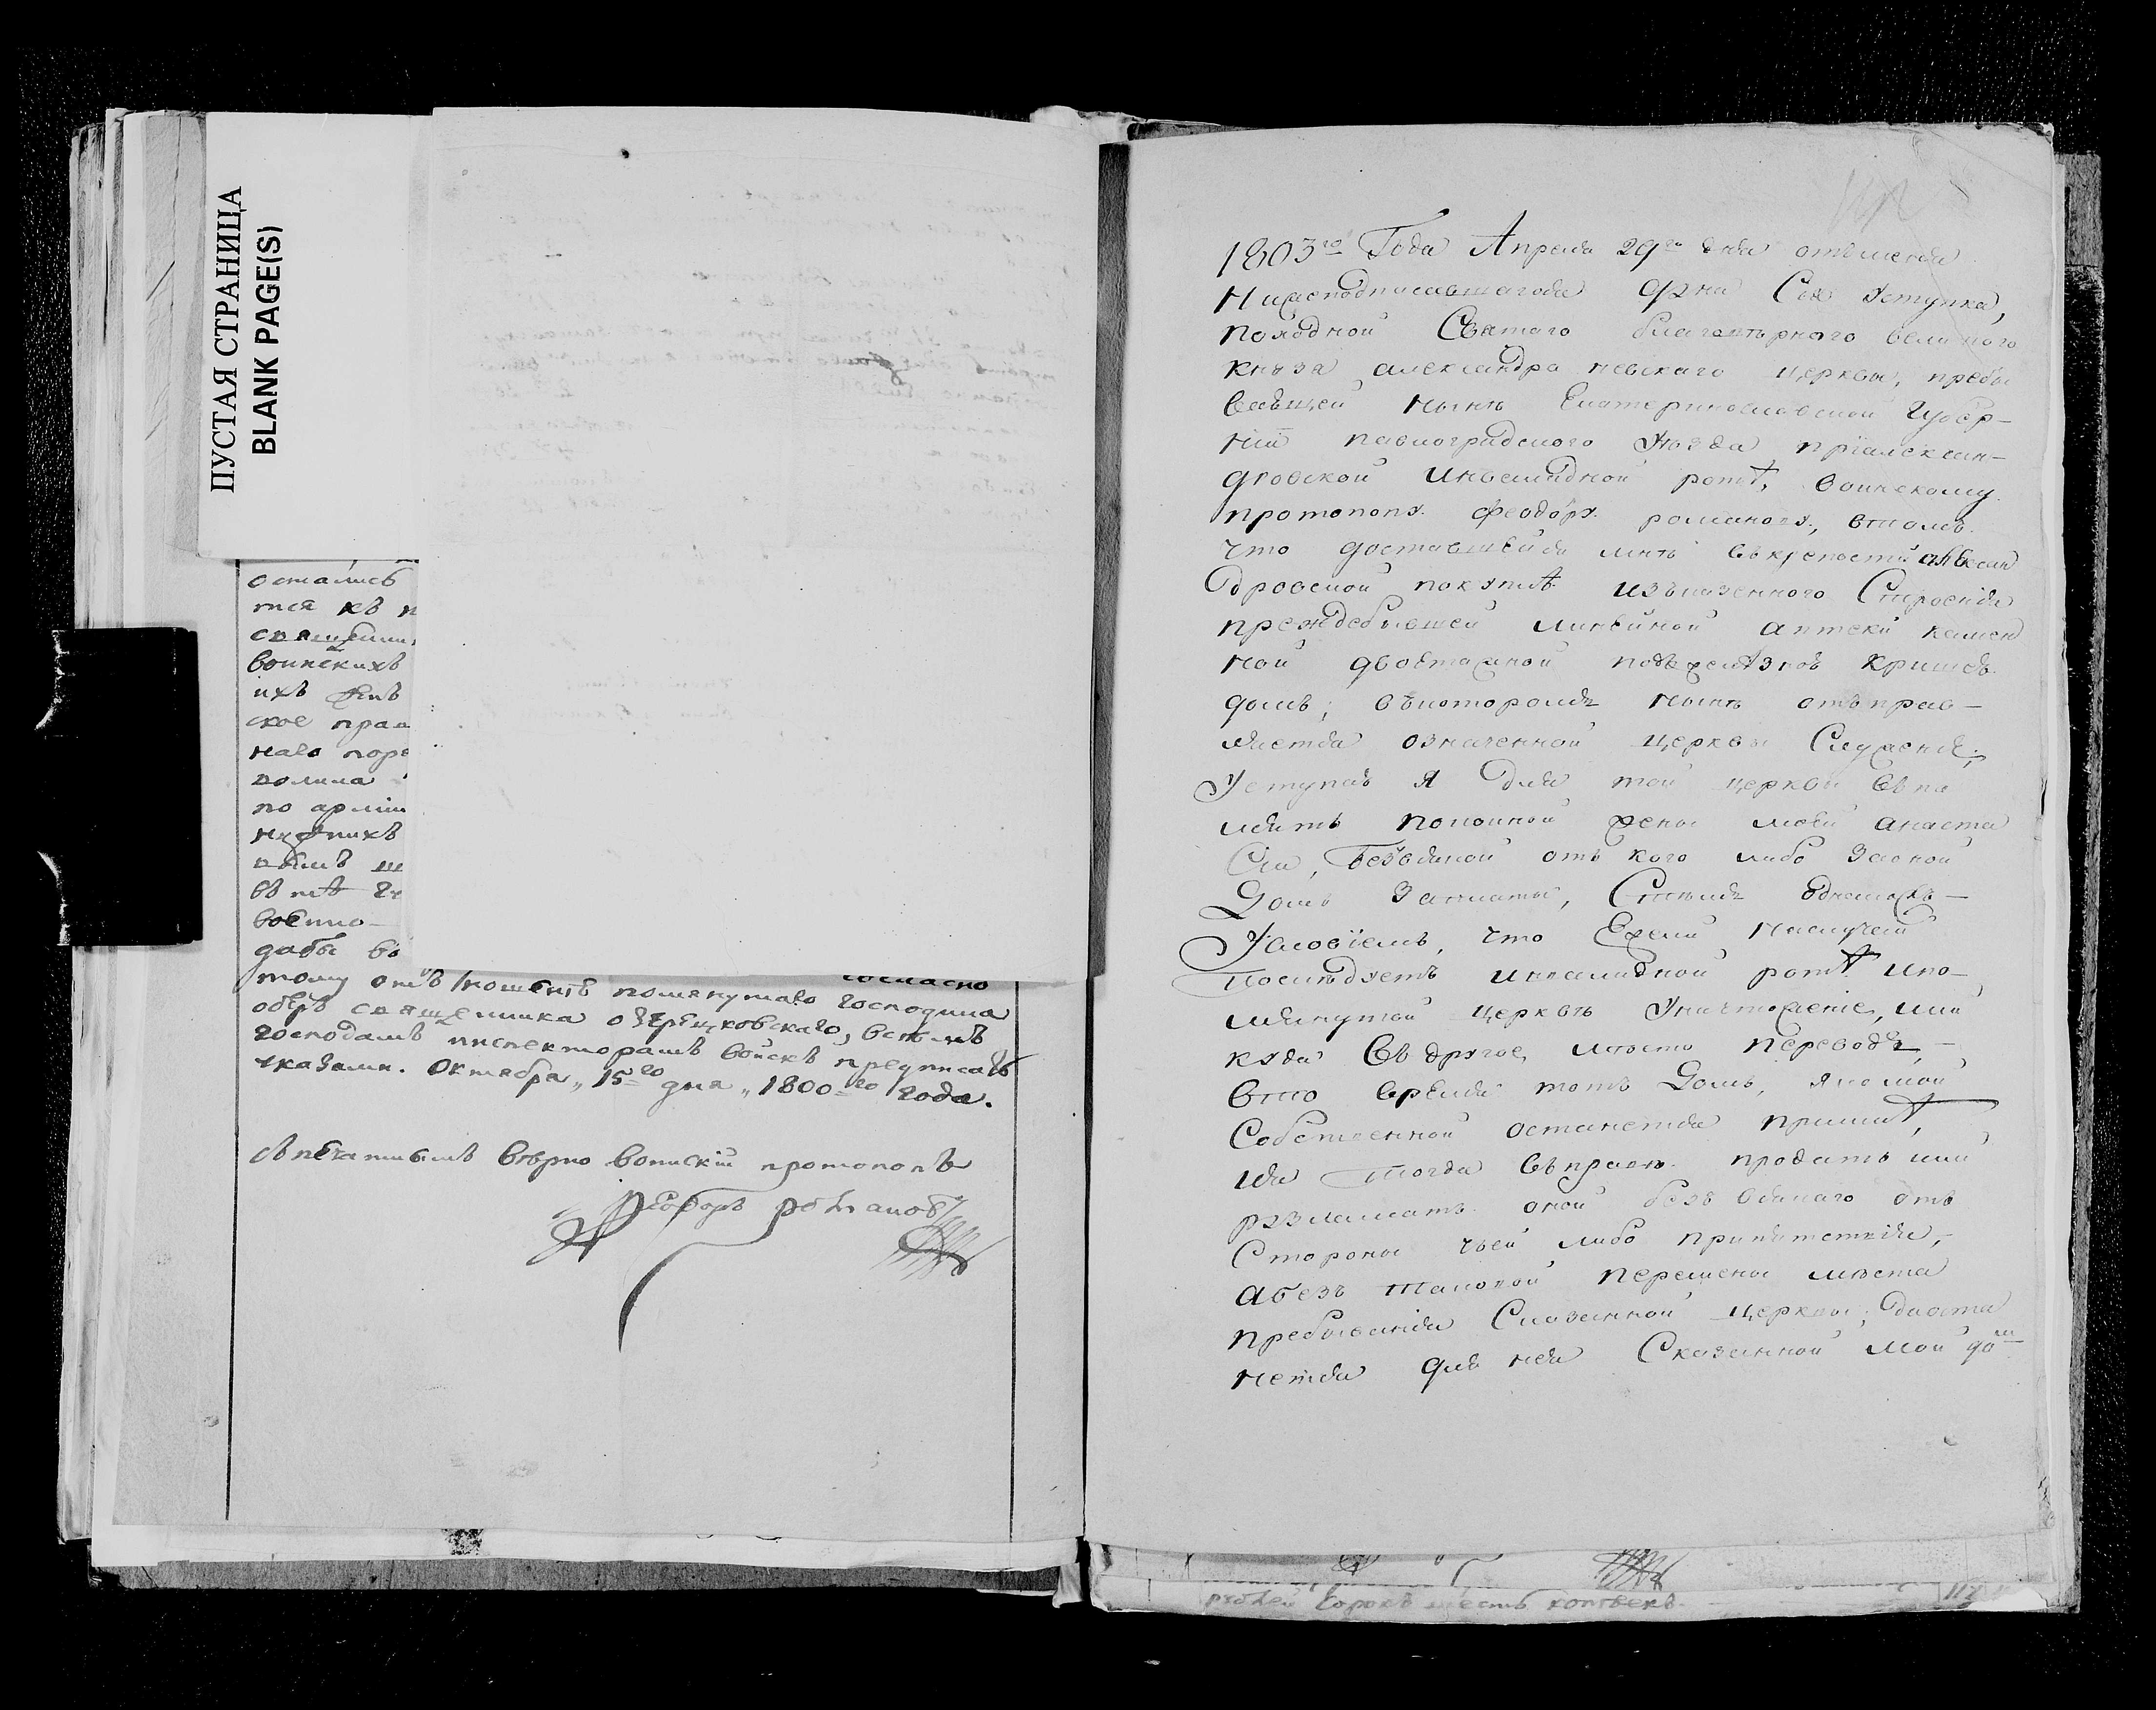 ПУСТАЯ СТРАНИЦА
BLANK PAGE(S)
остались
тся къ п
священни
воинскихъ
ихъ
ское прав
наго поро
по арміи
въ
военно-
дабы во
согласно
тому отъношенію помянутаго господина
оберъ священника озерецковскаго, всѣмъ
господамъ инспекторамъ войскъ предписать
указами. Октября „15го дня „1800го года.
Съ печатнымъ вѣрно воинскій протопопъ
Феодоръ романовъ
1803го Года Апреля 29го дня отъменя
Нижеподписавшагося дана Сия Уступка,
походной Святаго благовѣрного великого
князя александра невскаго церкви, пребы
вающей нынѣ Екатеринославской Губер-
ніи павлоградского Уѣзда пріалексан-
дровской Инвалидной ротѣ, воинскому
протопопу феодору романову, втомъ
что доставшейся мнѣ въкрепости алексан
дровской покупкѣ изъказенного Строенія
преждебывшей линейной аптеки камен
ной двоетажной подъ железной кришею
домъ; вкоторомъ нынѣ отъправ-
ляется означенной церкви Служеніе;
Уступаю я для той церкви впа
мять покойной жены моей анаста
Сии, безъ всякой отъ кого либо Заоной
Домъ Заплаты, Стѣмъ однакожъ-
Условіемъ, что Ежели паслучаю
Послѣдуетъ инвалидной ротѣ ипо-
мянутой церкви Уничтоженіе, или
куда Въ другое мѣсто переводъ,-
Вто время тотъ Домъ, яко мой
Собственной останется примнѣ,
ия тогда въправѣ продать или
разламать оной безъ всякаго отъ
Стороны чьей либо припятствія,-
абезъ таковой перемены мѣста
пребыванія Сказанной церкви, даоста
нется для нея Сказанной мой домъ
рублей Сорокъ шесть копѣекъ.
112